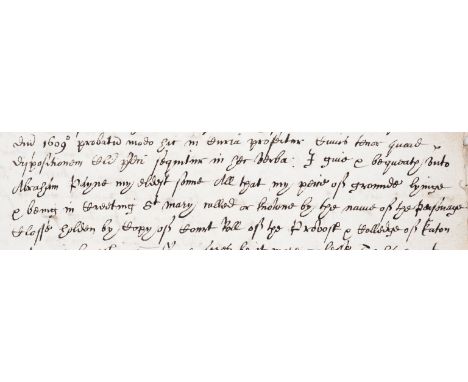 dni 1609° probatu modo hic in Curia profertur Cuius tenor quoad
dispositionem sequitur in hec verba: I give & bequeath unto
Abraham Payne my eldest sonne All that my peice of grounde lyinge
& being in Creeting St Mary called or knowne by the name of the Personage
Closse holden by Copy of Court Roll of the Provost & Colledge of Eaton